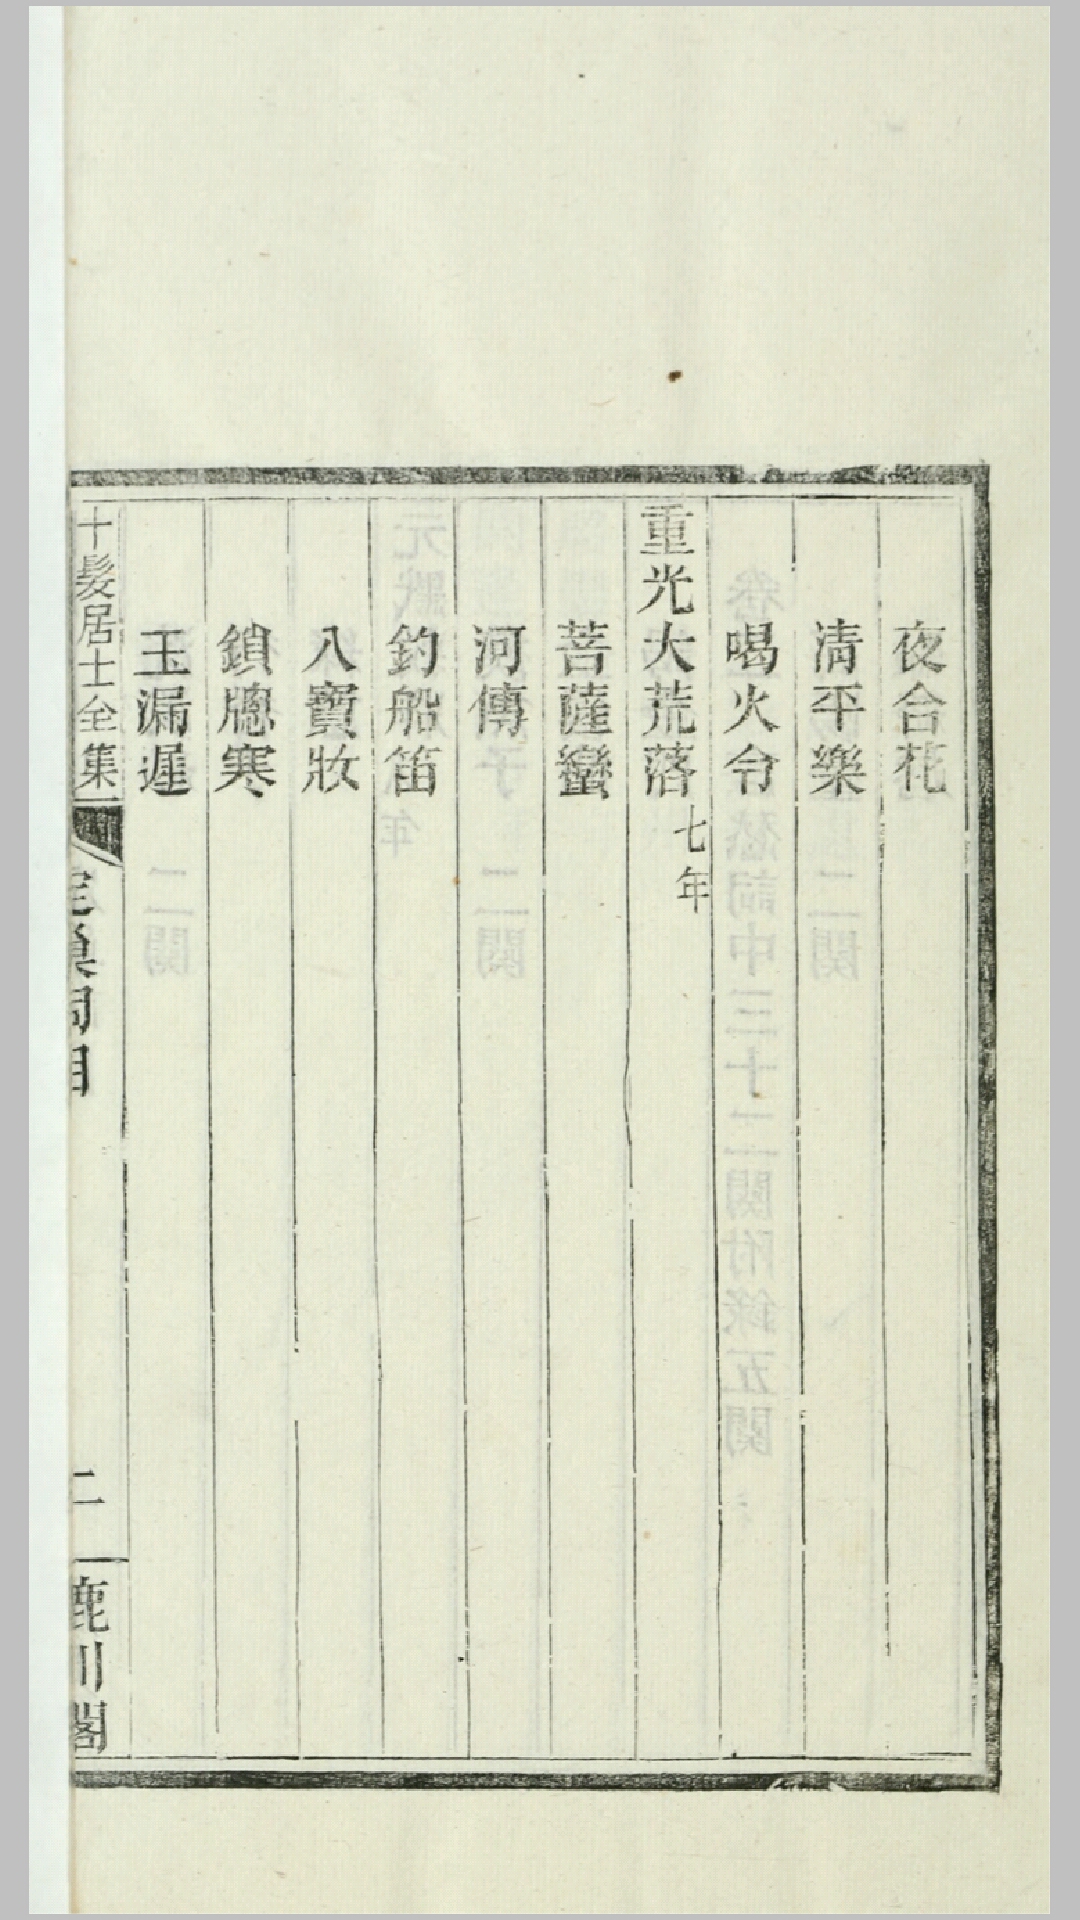 夜合花
淸平樂
喝火令
重光大荒落七年
菩薩蠻
河傳
釣船笛
八寶妝
鎖牕寒
玉漏遲
十髮居士全集
定巢詞目
二
鹿川閣